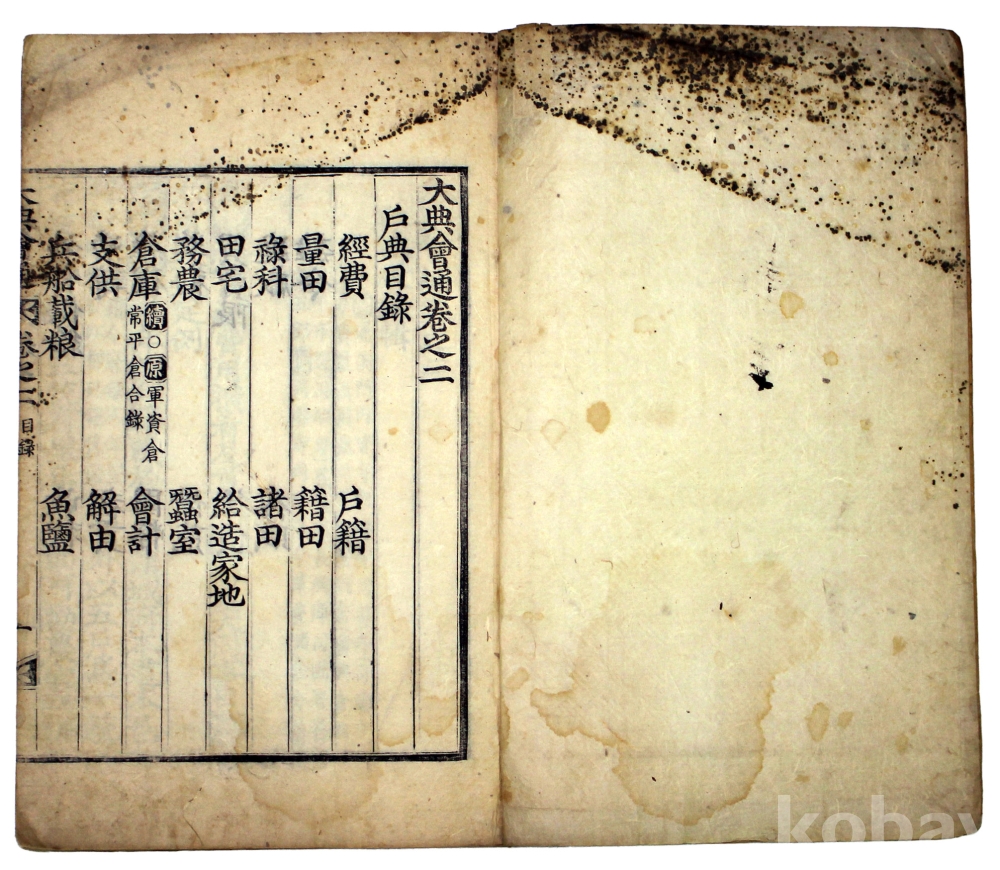 大典會通卷之二
戶典目錄
經費 戶籍
量田 籍田
祿科 諸田
田宅 給造家地
務農 蠶室
倉庫 續○原軍資倉常平倉合錄 會計
支供 解由
兵船載粮 魚鹽
大典會通 卷之二 目錄 一
kobay